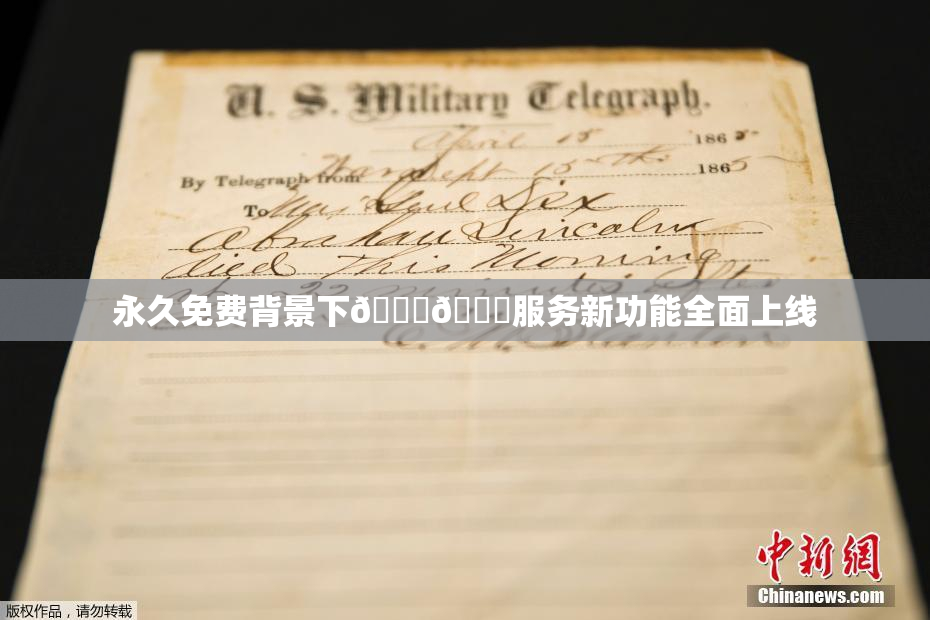 U. S. Military Telegraph.
April 15 1865
By Telegraph from War Dept 15th 1865
To Maj Genl Dix
Abraham Lincoln
died This Morning
at 22 minutes after
永久免费背景下ð ð 服务新功能全面上线
E. M. Stanton
中新网
Chinanews.com
版权作品，请勿转载